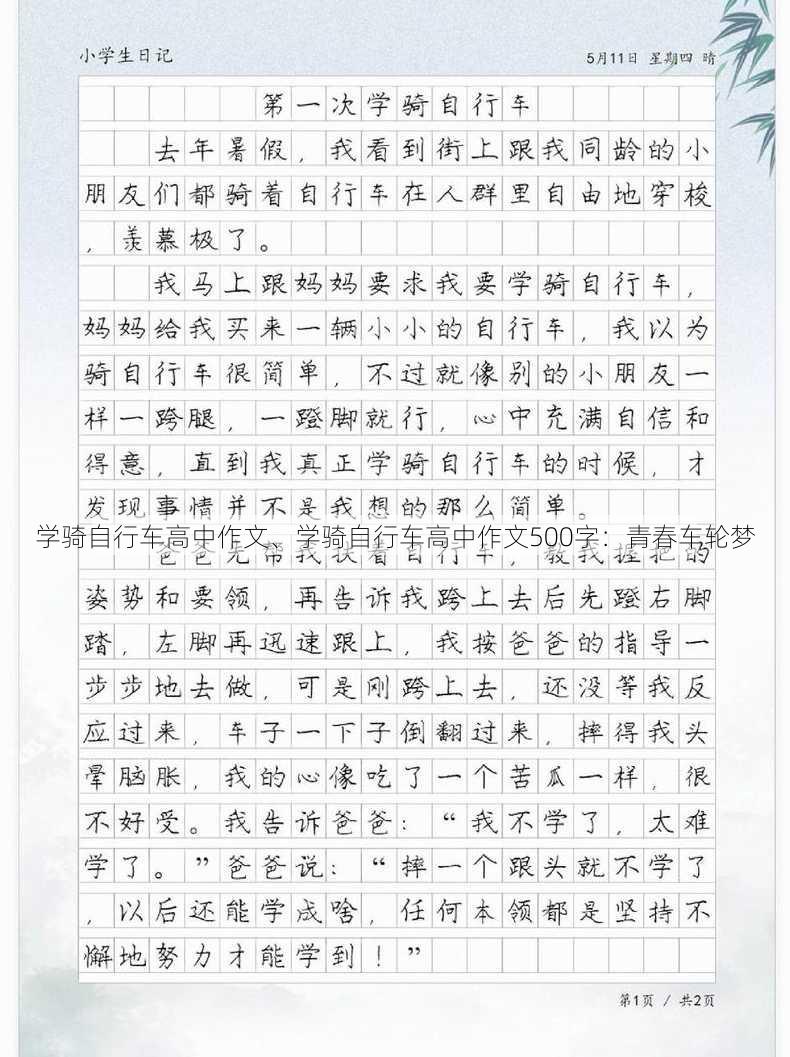 小学生日记
5月11日 星期四 晴
第一次学骑自行车
去年暑假，我看到街上跟我同龄的小
朋友们都骑着自行车在人群里自由地穿梭
，羡慕极了。
我马上跟妈妈要求我要学骑自行车，
妈妈给我买来一辆小小的自行车，我以为
骑自行车很简单，不过就像别的小朋友一
样一跨腿，一蹬脚就行，心中充满自信和
得意，直到我真正学骑自行车的时候，才
发现事情并不是我想的那么简单。
学骑自行车高中作文、学骑自行车高中作文500字：青春车轮梦
爸爸先帮我扶着自行车，教我握把的
姿势和要领，再告诉我跨上去后先蹬右脚
踏，左脚再迅速跟上，我按爸爸的指导一
步步地去做，可是刚跨上去，还没等我反
应过来，车子一下子倒翻过来，摔得我头
晕脑胀，我的心像吃了一个苦瓜一样，很
不好受。我告诉爸爸：“我不学了，太难
学了。”爸爸说：“摔一个跟头就不学了
，以后还能学成啥，任何本领都是坚持不
懈地努力才能学到！”
第1页 / 共2页